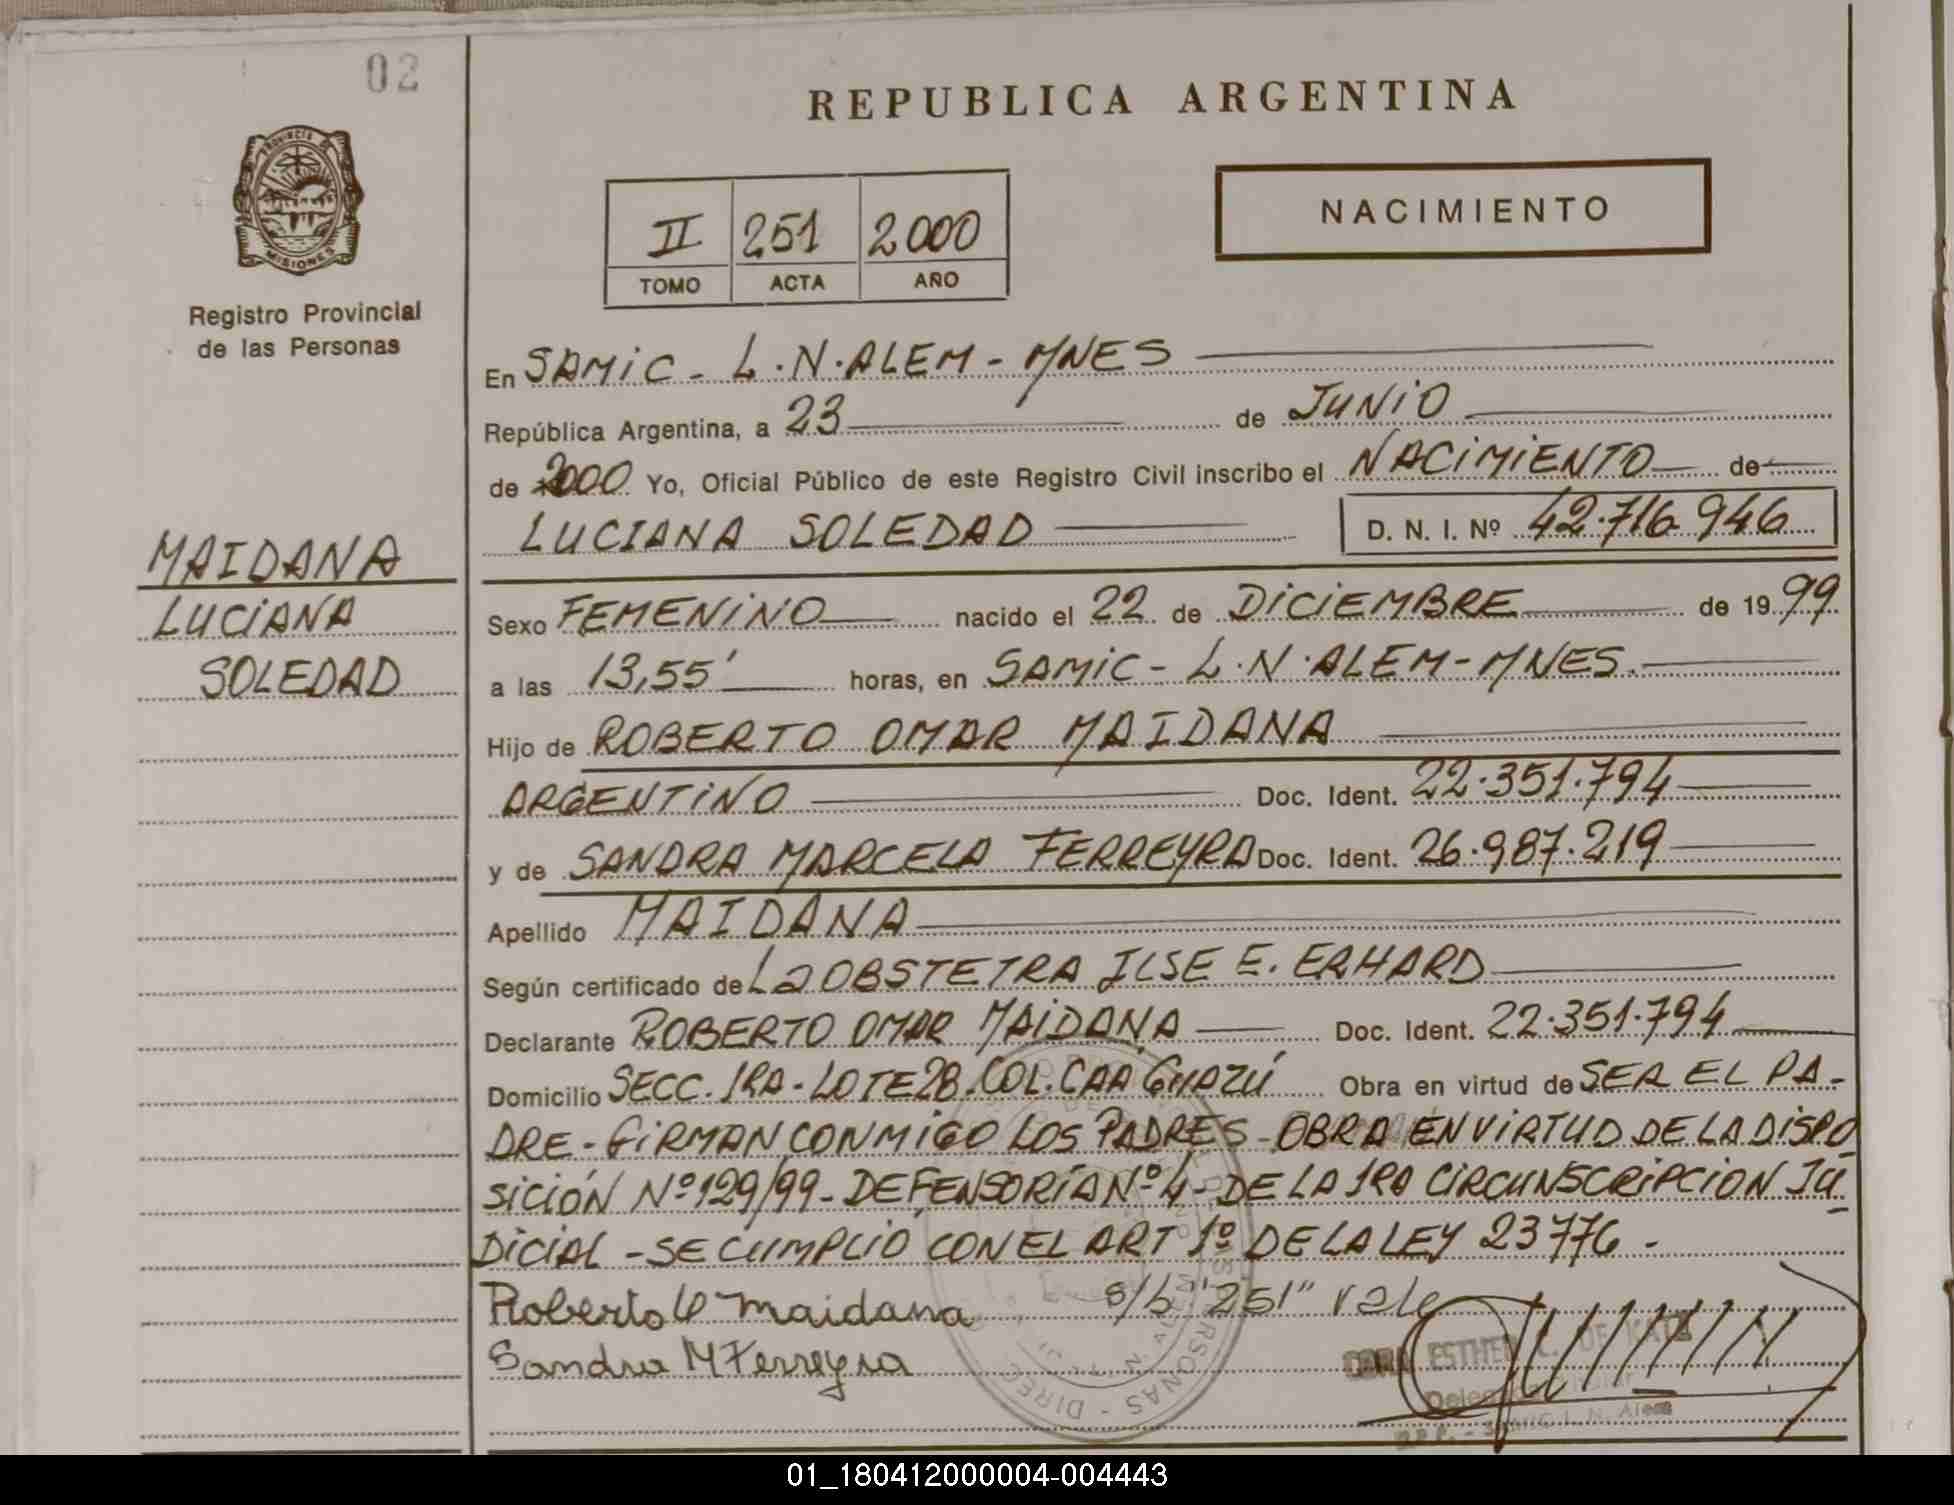 02
PROVINCIA DE
MISIONES
Registro Provincial
de las Personas
MAIDANA
LUCIANA
SOLEDAD
REPUBLICA ARGENTINA
II 251 2000
TOMO ACTA AÑO
NACIMIENTO
En SAMIC - L.N.ALEM - MNES
República Argentina, a 23 de JUNIO
de 2000 Yo, Oficial Público de este Registro Civil inscribo el NACIMIENTO de
LUCIANA SOLEDAD D. N. I. Nº 42.716.946
Sexo FEMENINO nacido el 22 de DICIEMBRE de 1999
a las 13,55' horas, en SAMIC - L.N.ALEM - MNES.
Hijo de ROBERTO OMAR MAIDANA
ARGENTINO Doc. Ident. 22.351.794
y de SANDRA MARCELA FERREYRA Doc. Ident. 26.987.219
Apellido MAIDANA
Según certificado de La OBSTETRA ILSE E. ERHARD
Declarante ROBERTO OMAR MAIDANA Doc. Ident. 22.351.794
Domicilio SECC. 1RA - LOTE 28. COL. CAA GUAZÚ Obra en virtud de SER EL PA-
DRE - FIRMAN CONMIGO LOS PADRES - OBRA EN VIRTUD DE LA DISPO
SICIÓN Nº 129/99 - DEFENSORÍA Nº 4 - DE LA 1RA CIRCUNSCRIPCION JU
DICIAL - SE CUMPLIÓ CON EL ART 1º DE LA LEY 23776 -
Roberto O Maidana s/b "251" vale
Sandra M Ferreyra
ESTHER C. DE KATZ
L. N. Alem
01_180412000004-004443